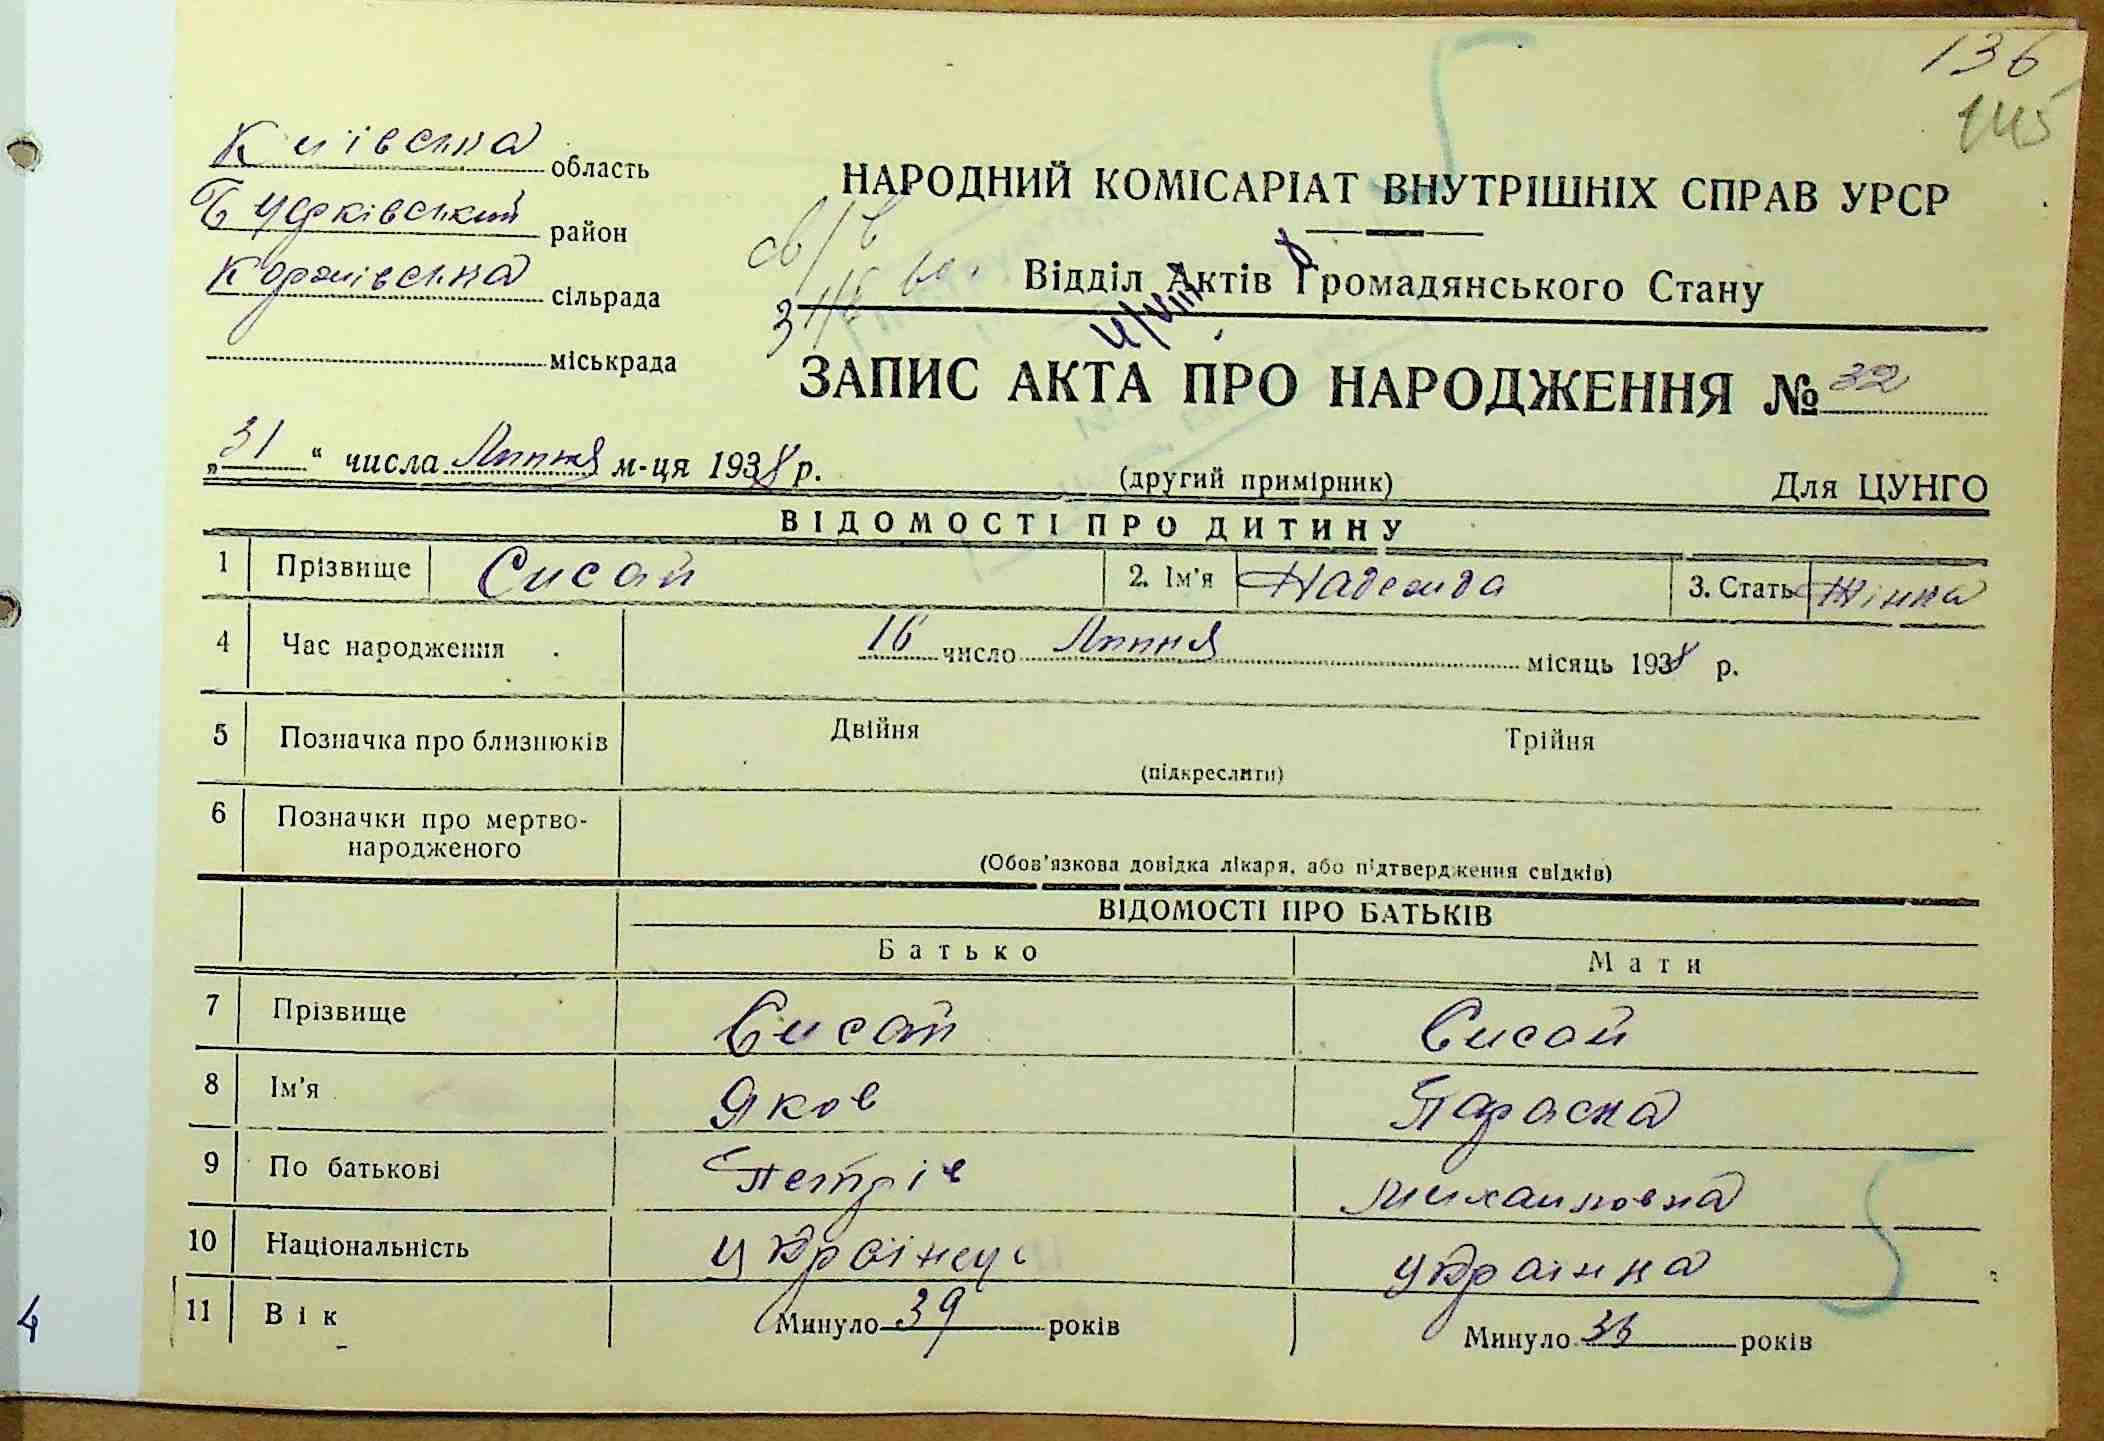 136
145
Київська область
Будківський район
сільрада
міськрада
НАРОДНИЙ КОМІСАРІАТ ВНУТРІШНІХ СПРАВ УРСР
Відділ Актів Громадянського Стану
ЗАПИС АКТА ПРО НАРОДЖЕННЯ № 32
„31“ числа Липня м-ця 1938 р.
(другий примірник)
Для ЦУНГО
ВІДОМОСТІ ПРО ДИТИНУ
1 Прізвище Сисай 2. Ім'я Надежда 3. Стать Жінка
4 Час народження 16 число Липня місяць 1938 р.
5 Позначка про близнюків Двійня Трійня
(підкреслити)
6 Позначки про мертво-
народженого
(Обов'язкова довідка лікаря, або підтвердження свідків)
ВІДОМОСТІ ПРО БАТЬКІВ
Батько Мати
7 Прізвище Сисай Сисай
8 Ім'я Яков Параска
9 По батькові Петрів Михайловна
10 Національність українець українка
11 Вік Минуло 39 років Минуло років
4